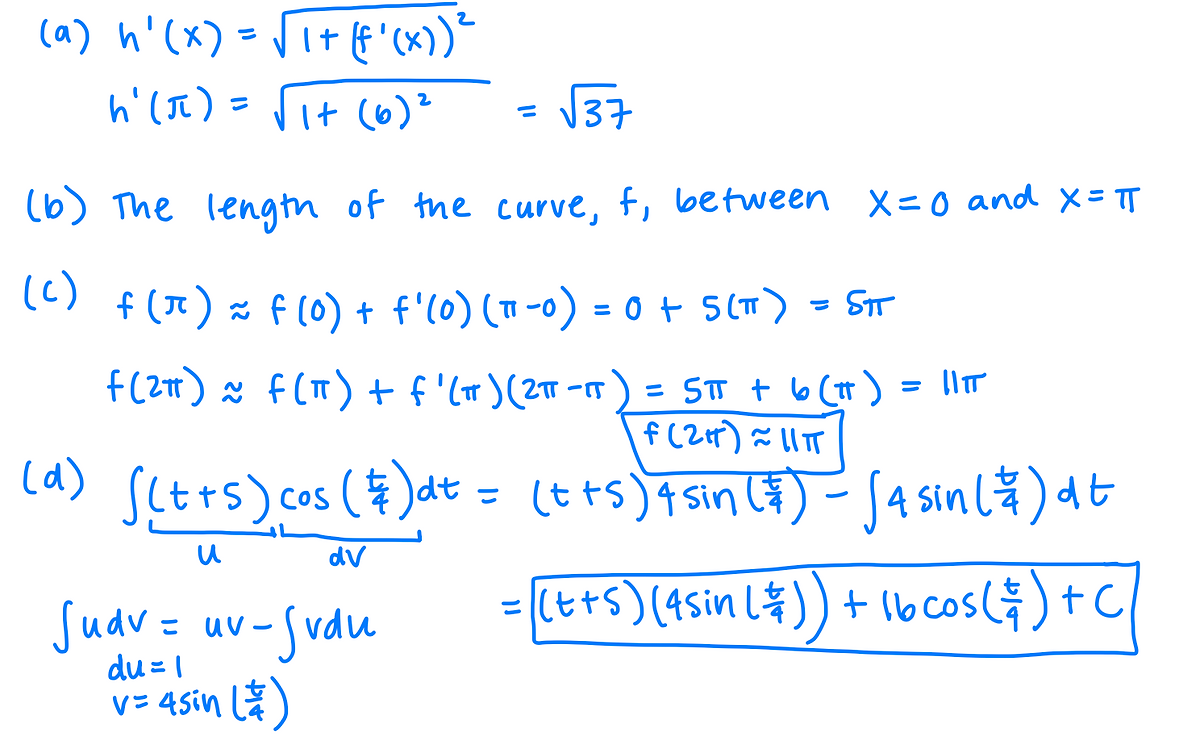 (a) h'(x) = √(1 + (f'(x))²)
h'(π) = √(1 + (6)²) = √37
(b) The length of the curve, f, between x=0 and x=π
(c) f(π) ≈ f(0) + f'(0)(π-0) = 0 + 5(π) = 5π
f(2π) ≈ f(π) + f'(π)(2π-π) = 5π + 6(π) = 11π
f(2π) ≈ 11π
(d) ∫(t+5)cos(t/4)dt = (t+5)4sin(t/4) - ∫4sin(t/4)dt
u dv
= (t+5)(4sin(t/4)) + 16cos(t/4) + C
∫udv = uv - ∫vdu
du = 1
v = 4sin(t/4)